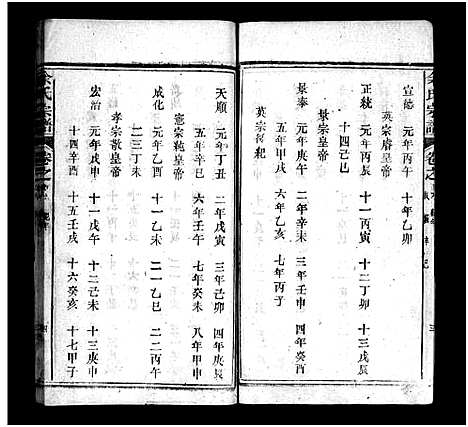 余氏宗譜
卷之
宣德　元年丙午　十年乙卯
英宗睿皇帝
正統　元年丙辰　十一丙寅　十二丁卯　十三戊辰
十四己巳
景宗皇帝
景泰　元年庚午　二年辛未　三年壬申　四年癸酉
五年甲戌　六年乙亥　七年丙子
英宗復祀
天順　元年丁丑　二年戊寅　三年己卯　四年庚辰
五年辛巳　六年壬午　七年癸未　八年甲申
憲宗純皇帝
成化　元年乙酉　十一乙未　二一乙巳　二二丙午
二三丁未
孝宗敬皇帝
宏治　元年戊申　十一戊午　十二己未　十三庚申
十四辛酉　十五壬戌　十六癸亥　十七甲子
余氏宗譜
卷之